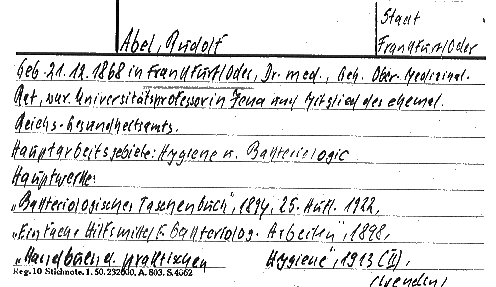 Stadt
Abel, Rudolf Frankfurt/Oder
Geb. 21.12.1868 in Frankfurt/Oder, Dr. med., Geh. Ober-Medizinal-
Rat, war Universitätsprofessor in Jena und Mitglied des ehemal.
Reichs-Gesundheitsamts.
Hauptarbeitsgebiete: Hygiene u. Bakteriologie
Hauptwerke:
„Bakteriologisches Taschenbuch", 1894, 25. Aufl. 1922,
„Einfache Hilfsmittel z. Bakteriolog. Arbeiten", 1898,
„Handbuch d. praktischen Hygiene", 1913 (II),
Reg. 10 Stichnote. 1. 50. 232000, A. 803. S. 4062
(wenden)